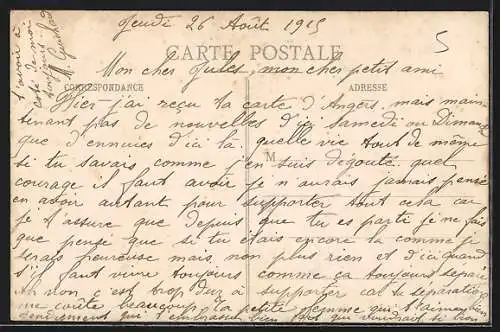 Jeudi 26 Août 1915
5
CARTE POSTALE
Mon cher Jules, mon cher petit ami
CORRESPONDANCE
ADRESSE
Hier j'ai reçu ta carte d'Angers, mais main
tenant pas de nouvelles d'ici samedi ou Dimanche
que d'ennuies d'ici là quelle vie tout de même
si tu savais comme j'en suis dégoutée quel
M
courage il faut avoir je n'aurais jamais pensé
en avoir autant pour supporter tout cela car
je t'assure que depuis que tu es parti je ne fais
que penser que si tu étais encore là comme je
serais heureuse mais non plus rien et d'ici quand
s'il faut vivre toujours comme ça toujours séparée
Ah non c'est trop dur à supporter car ta séparation
me coûte beaucoup Ta petite femme qui t'aime bien
tendrement qui t'embrasse bien fort qui voudrait si bien
t'avoir à
coté de moi
toujours